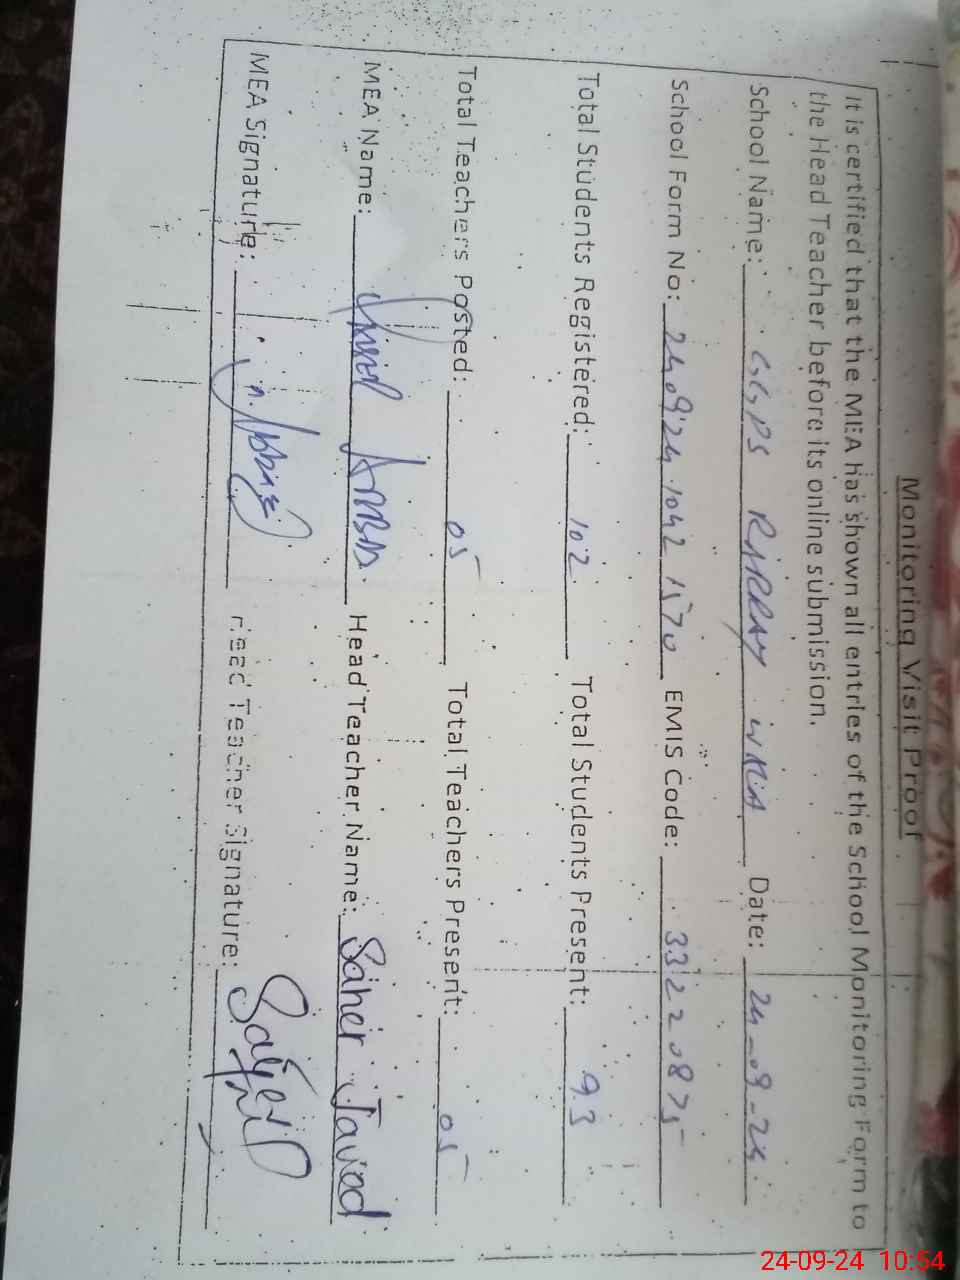 Monitoring Visit Proof
It is certified that the MEA has shown all entries of the School Monitoring Form to
the Head Teacher before its online submission.
School Name: GGPS Date: 24-09-24
School Form No: 240924 1042 1570 EMIS Code: 33220875
Total Students Registered: 102 Total Students Present: 93
Total Teachers Posted: 05 Total Teachers Present: 05
MEA Name: Head Teacher Name: Saher Javed
MEA Signature: Head Teacher Signature:
24-09-24 10:54